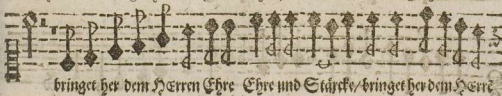 bringet her dem HErren Ehre Ehre und Stärcke/bringet her dem HErrē